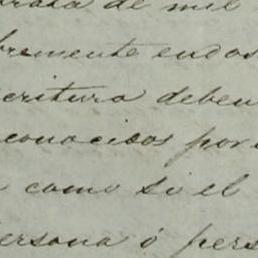 trata de mil
bremente en dos
critura deben
conocidos por
como si el
ersona ó pers